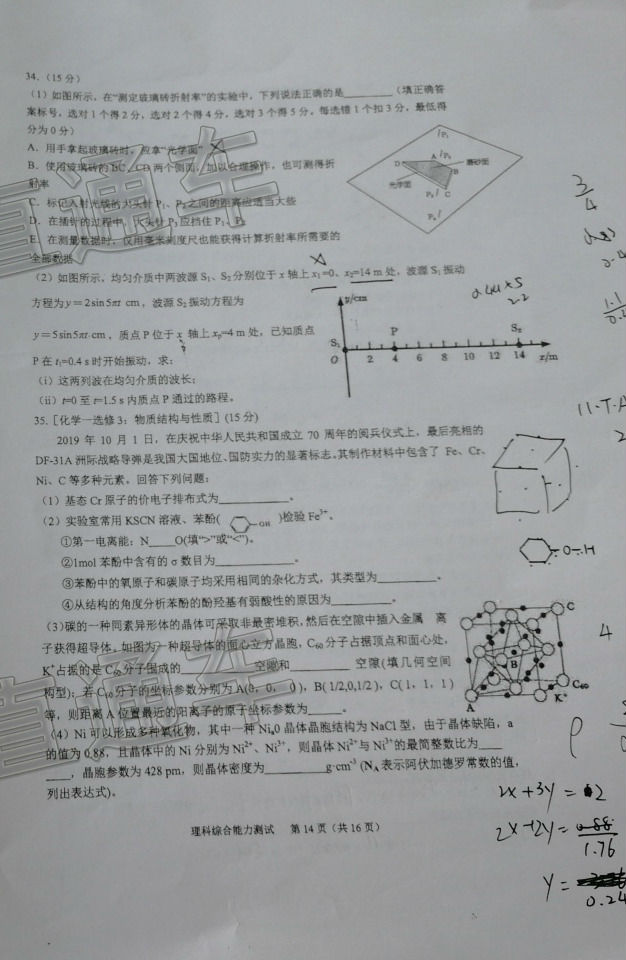 34.（15分）
（1）如图所示，在“测定玻璃砖折射率”的实验中，下列说法正确的是________（填正确答
案标号，选对1个得2分，选对2个得4分，选对3个得5分，每选错1个扣3分，最低得
分为0分）
A．用手拿起玻璃砖时，应拿“光学面”
B．使用玻璃砖的BC、CD两个侧面，加以合理操作，也可测得折
射率
C．标记入射光线的大头针P₁、P₂之间的距离应适当大些
D．在插针的过程中，大头针P₃应挡住P₁、P₂
E．在测量数据时，仅用毫米刻度尺也能获得计算折射率所需要的
全部数据
P₁
P₂
A
B
C
D
磨砂面
光学面
P₃
P₄
（2）如图所示，均匀介质中两波源S₁、S₂分别位于x轴上x₁=0、x₂=14 m处，波源S₁振动
方程为y＝2sin5πt cm，波源S₂振动方程为
y＝5sin5πt cm，质点P位于x 轴上xₚ=4 m处，已知质点
P在t₁=0.4 s时开始振动，求：
（i）这两列波在均匀介质的波长；
（ii）t=0至t=1.5 s内质点P通过的路程。
y/cm
S₁ P S₂
O 2 4 6 8 10 12 14 x/m
35.［化学—选修3：物质结构与性质］(15分)
2019 年 10 月 1 日，在庆祝中华人民共和国成立 70 周年的阅兵仪式上，最后亮相的
DF-31A 洲际战略导弹是我国大国地位、国防实力的显著标志。其制作材料中包含了 Fe、Cr、
Ni、C 等多种元素。回答下列问题：
（1）基态Cr原子的价电子排布式为________。
（2）实验室常用KSCN溶液、苯酚( OH )检验Fe³⁺。
①第一电离能：N____O(填“>”或“<”)。
②1mol苯酚中含有的σ数目为________。
③苯酚中的氧原子和碳原子均采用相同的杂化方式，其类型为________。
④从结构的角度分析苯酚的酚羟基有弱酸性的原因为________。
（3)碳的一种同素异形体的晶体可采取非最密堆积，然后在空隙中插入金属 离
子获得超导体。如图为一种超导体的面心立方晶胞，C₆₀分子占据顶点和面心处，
K⁺占据的是C₆₀分子围成的________ 空隙和________ 空隙(填几何空间
构型)；若C₆₀分子的坐标参数分别为A(0，0，0)，B(1/2,0,1/2)，C(1，1，1)
等，则距离A位置最近的阳离子的原子坐标参数为________。
C
B
A
C₆₀
K⁺
（4）Ni可以形成多种氧化物，其中一种NiₐO晶体晶胞结构为NaCl型，由于晶体缺陷，a
的值为0.88，且晶体中的Ni分别为Ni²⁺、Ni³⁺，则晶体Ni²⁺与Ni³⁺的最简整数比为____
____，晶胞参数为428 pm，则晶体密度为________g·cm⁻³ (N_A表示阿伏加德罗常数的值，
列出表达式)。
理科综合能力测试 第14页（共16页）
3/4
O-H
4
ρ
2x+3y=2
2x+2y=
1.76
y=
0.24
直通车
直通车